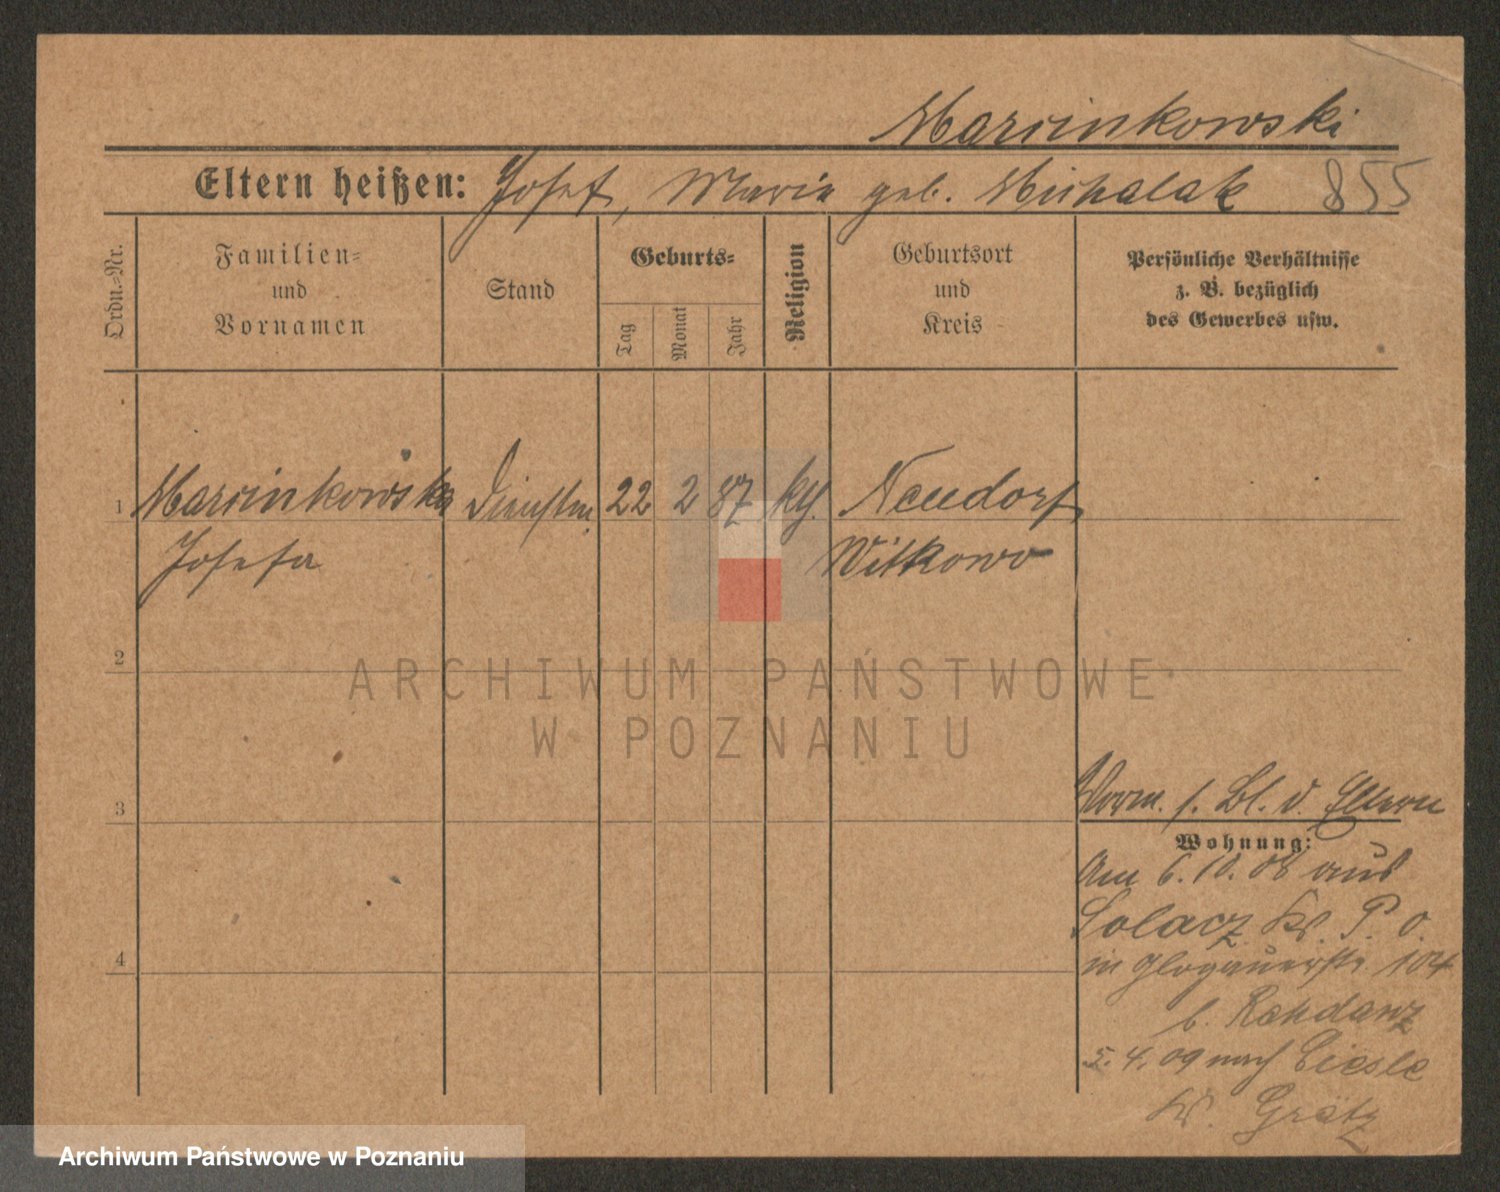 Marcinkowski
Eltern heißen: Josef, Maria geb. Michalak 855
Ordn.-Nr.
Familien-
und
Vornamen
Stand
Geburts-
Tag
Monat
Jahr
Religion
Geburtsort
und
Kreis
Persönliche Verhältnisse
z. B. bezüglich
des Gewerbes usw.
1 Marcinkowska Dienstm. 22 2 87 kth. Neudorf
Josefa Witkowo
2
ARCHIWUM PAŃSTWOWE
W POZNANIU
3
s. Bl. d. Eltern
Wohnung:
Am 6.10.08 aus
Solacz Kr. P. O.
in Glogauerstr. 104
b. Rehdanz
4
5.4.09 nach Ciesle
Kr. Grätz
Archiwum Państwowe w Poznaniu